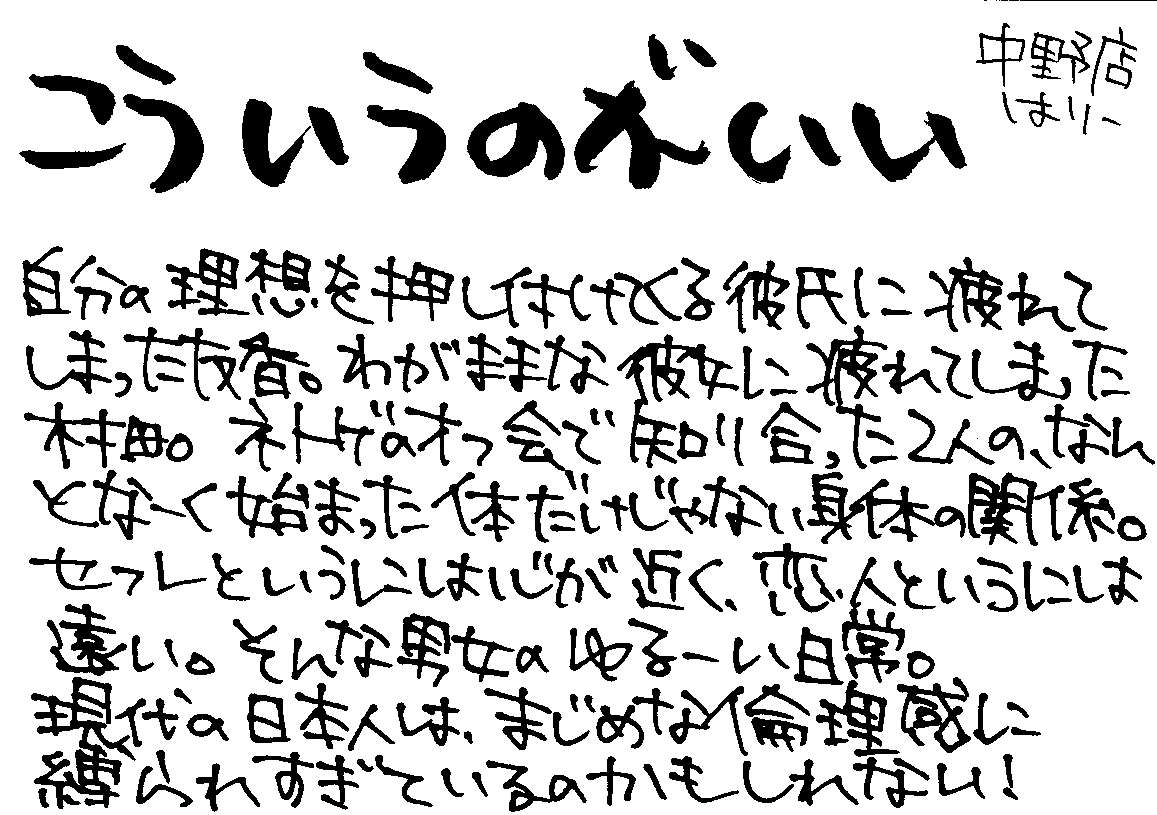 こういうのがいい
中野店
はりー
自分の理想を押し付けてくる彼氏に疲れて
しまった友香。わがままな彼女に疲れてしまった
村田。ネトゲのオフ会で知り合った2人の、なん
となーく始まった体だけじゃない身体の関係。
セフレというには心が近く、恋人というには
遠い。そんな男女のゆるーい日常。
現代の日本人は、まじめな倫理感に
縛られすぎているのかもしれない!